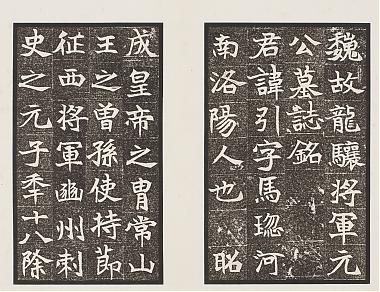 魏故龍驤將軍元
公墓誌銘
君諱引字馬琩河
南洛陽人也昭
成皇帝之胄常山
王之曾孫使持節
征西將軍豳州刺
史之元子年十八除